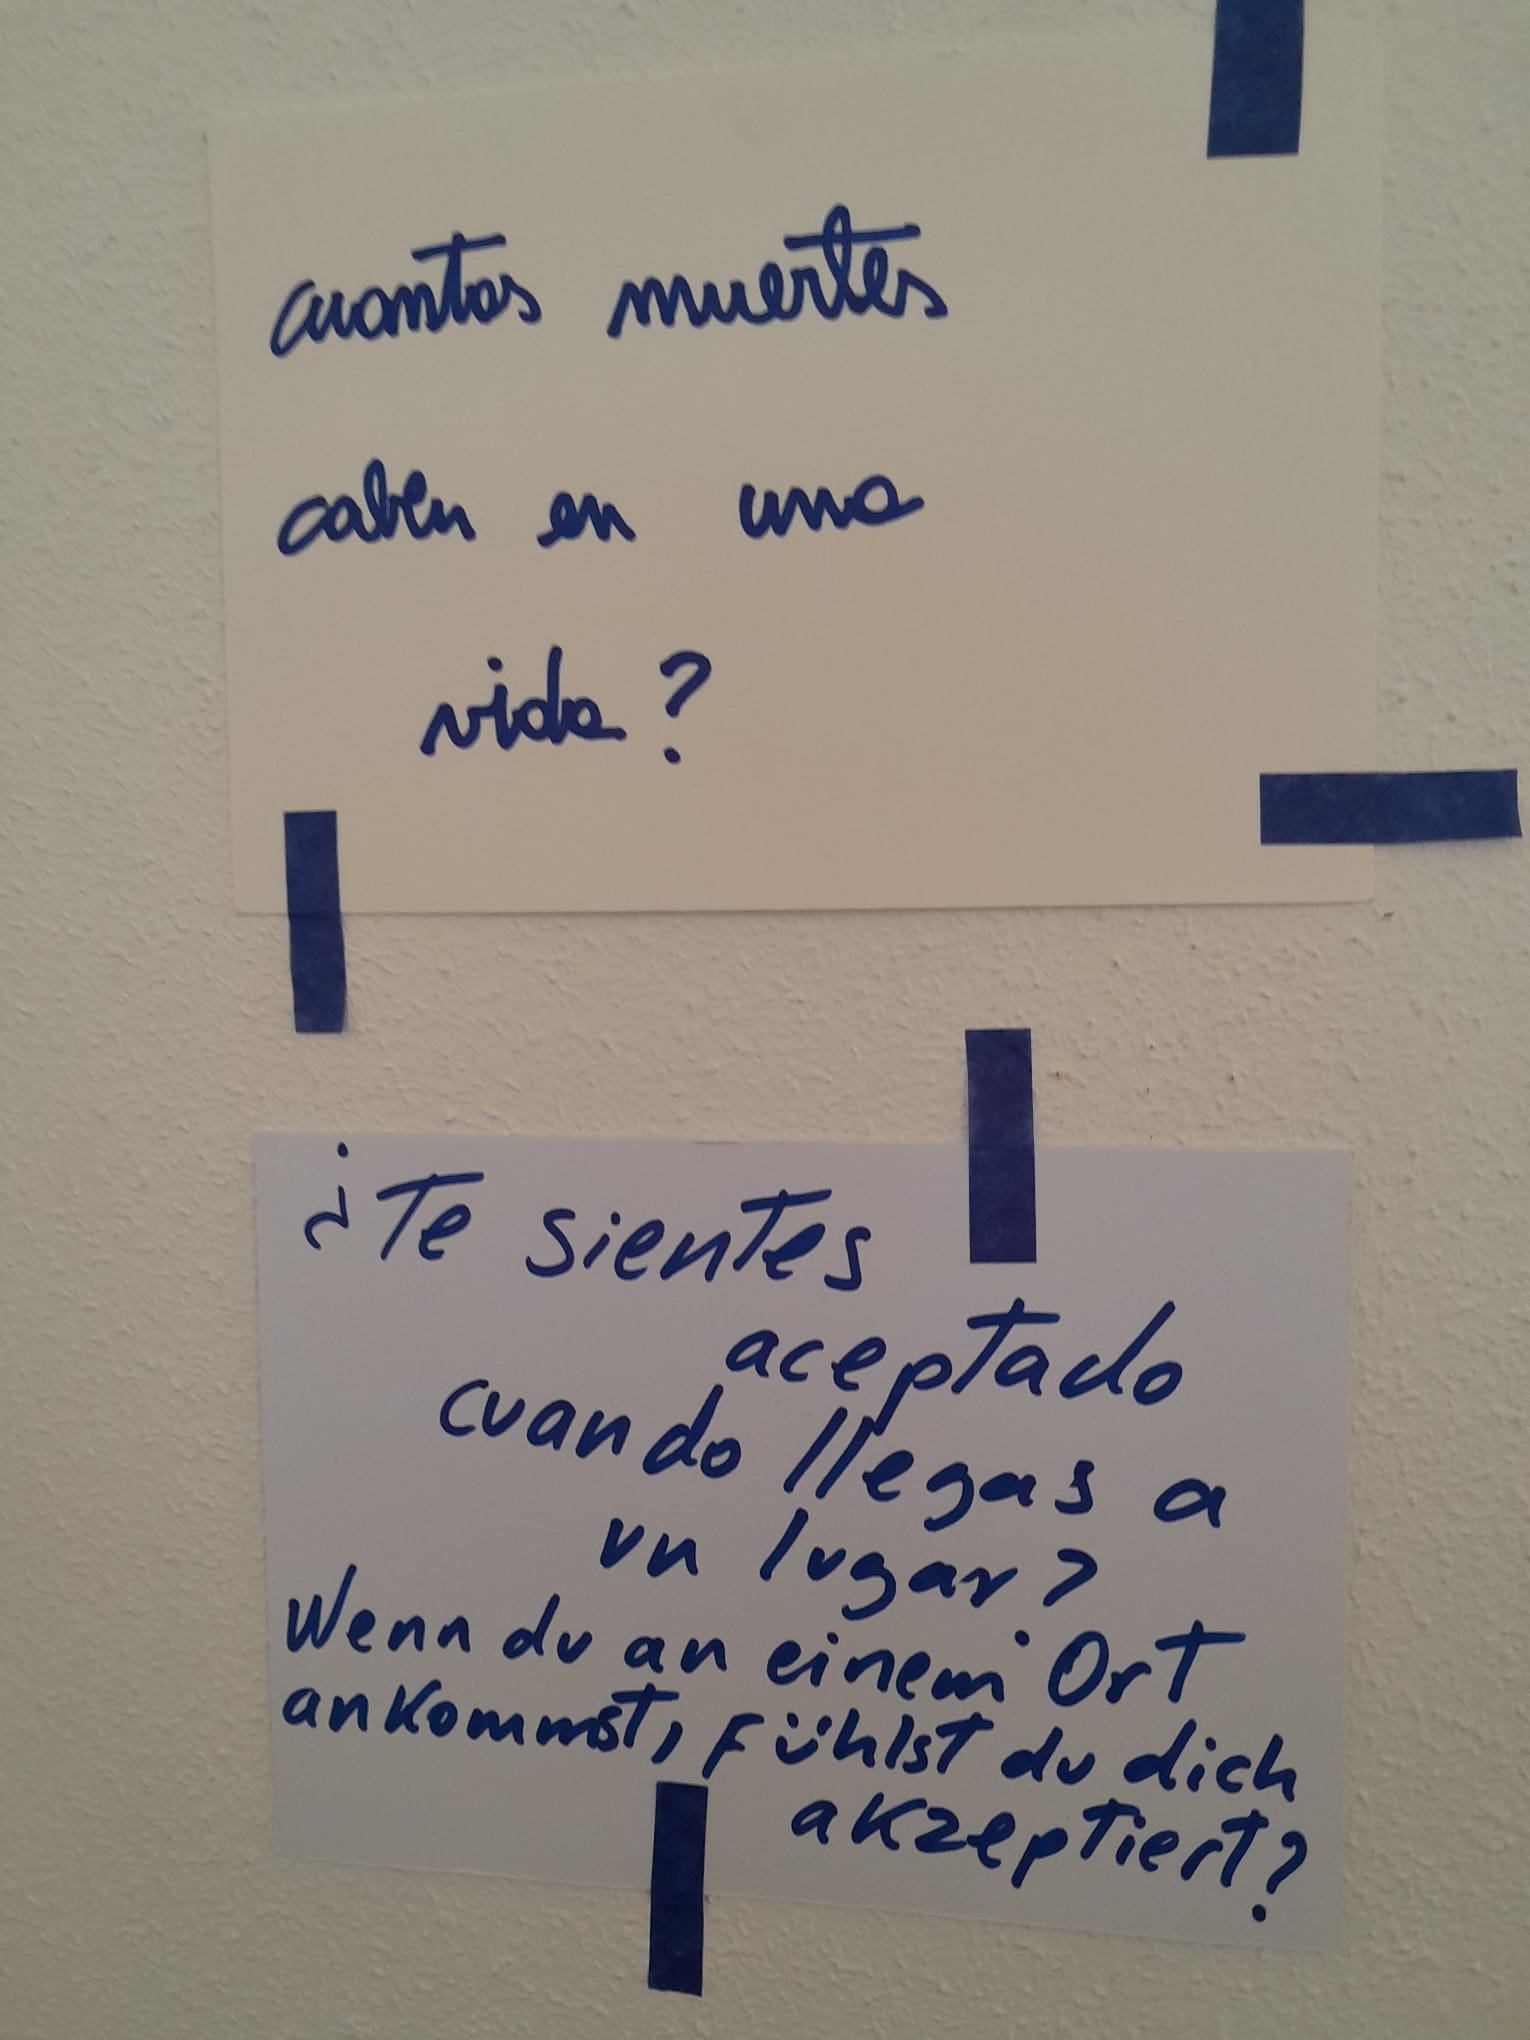 cuantas muertes
caben en una
vida?
¿Te sientes
aceptado
cuando llegas a
un lugar?
Wenn du an einem Ort
ankommst, fühlst du dich
akzeptiert?